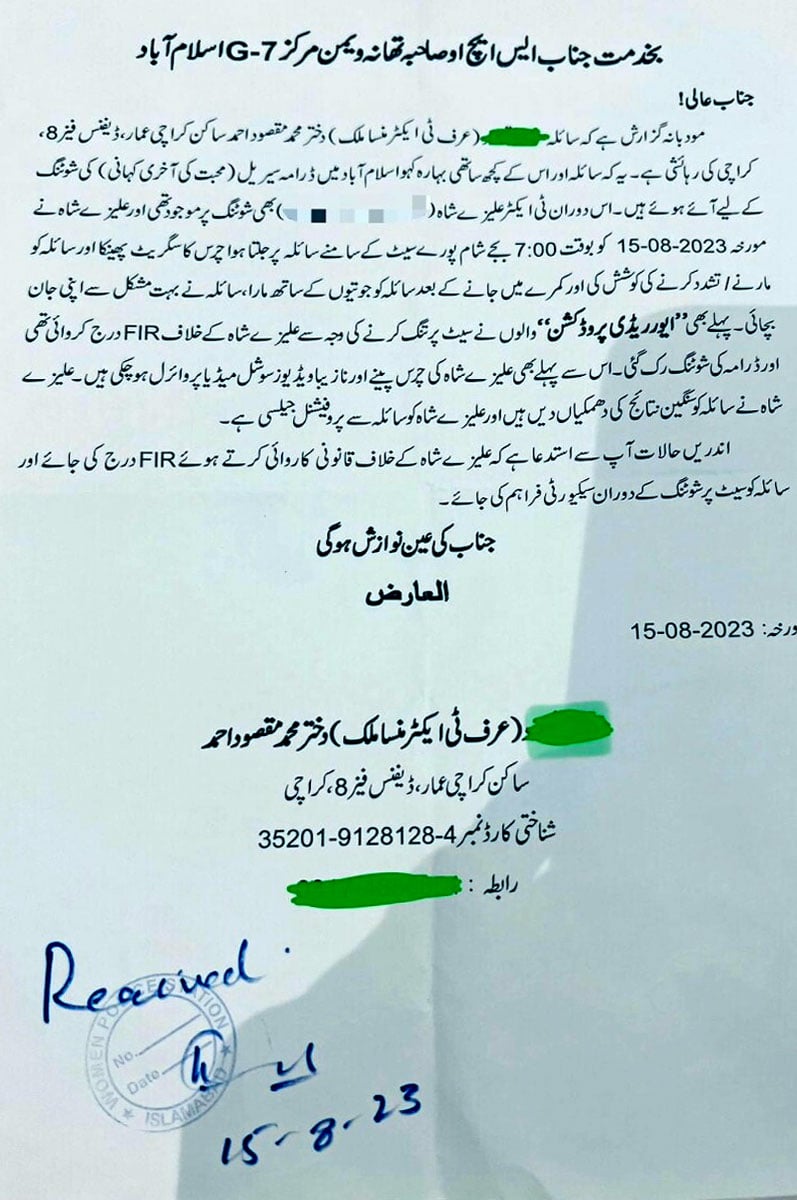 بخدمت جناب ایس ایچ او صاحبہ تھانہ ویمن مرکز G-7 اسلام آباد
جناب عالی!
مودبانہ گزارش ہے کہ سائلہ (عرف ٹی ایکٹر منسا ملک) دختر محمد مقصود احمد ساکن کراچی عمار، ڈیفنس فیز 8،
کراچی کی رہائشی ہے۔ یہ کہ سائلہ اور اس کے کچھ ساتھی بہارہ کہو اسلام آباد میں ڈرامہ سیریل (محبت کی آخری کہانی) کی شوٹنگ
کے لیے آئے ہوئے ہیں۔ اس دوران ٹی ایکٹر علیزے شاہ ( ) بھی شوٹنگ پر موجود تھی اور علیزے شاہ نے
مورخہ 15-08-2023 کو بوقت 7:00 بجے شام پورے سیٹ کے سامنے سائلہ پر جلتا ہوا چرس کا سگریٹ پھینکا اور سائلہ کو
مارنے / تشدد کرنے کی کوشش کی اور کمرے میں جانے کے بعد سائلہ کو جوتیوں کے ساتھ مارا، سائلہ نے بہت مشکل سے اپنی جان
بچائی۔ پہلے بھی "ایور ریڈی پروڈکشن" والوں نے سیٹ پر تنگ کرنے کی وجہ سے علیزے شاہ کے خلاف FIR درج کروائی تھی
اور ڈرامہ کی شوٹنگ رک گئی۔ اس سے پہلے بھی علیزے شاہ کی چرس پینے اور نازیبا ویڈیوز سوشل میڈیا پر وائرل ہو چکی ہیں۔ علیزے
شاہ نے سائلہ کو سنگین نتائج کی دھمکیاں دیں ہیں اور علیزے شاہ کو سائلہ سے پروفیشنل جیلسی ہے۔
اندریں حالات آپ سے استدعا ہے کہ علیزے شاہ کے خلاف قانونی کاروائی کرتے ہوئے FIR درج کی جائے اور
سائلہ کو سیٹ پر شوٹنگ کے دوران سیکیورٹی فراہم کی جائے۔
جناب کی عین نوازش ہوگی
العارض
مورخہ: 15-08-2023
(عرف ٹی ایکٹر منسا ملک) دختر محمد مقصود احمد
ساکن کراچی عمار، ڈیفنس فیز 8، کراچی
شناختی کارڈ نمبر 35201-9128128-4
رابطہ :
Received
WOMEN POLICE STATION
No.
Date
ISLAMABAD
15-8-23